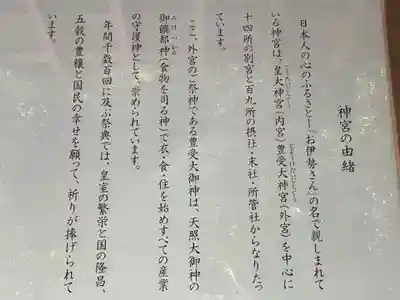 神宮の由緒
日本人の心のふるさと『お伊勢さん』の名で親しまれて
いる神宮は、皇大神宮(内宮)豊受大神宮(外宮)を中心に
十四所の別宮と百九所の摂社・末社・所管社からなりたっ
ています。
ここ、外宮のご祭神である豊受大御神は、天照大御神の
御饌都神(食物を司る神)で衣・食・住を始めすべての産業
の守護神として、崇められています。
年間千数百回に及ぶ祭典では、皇室の繁栄と国の隆昌、
五穀の豊穣と国民の幸せを願って、祈りが捧げられて
います。